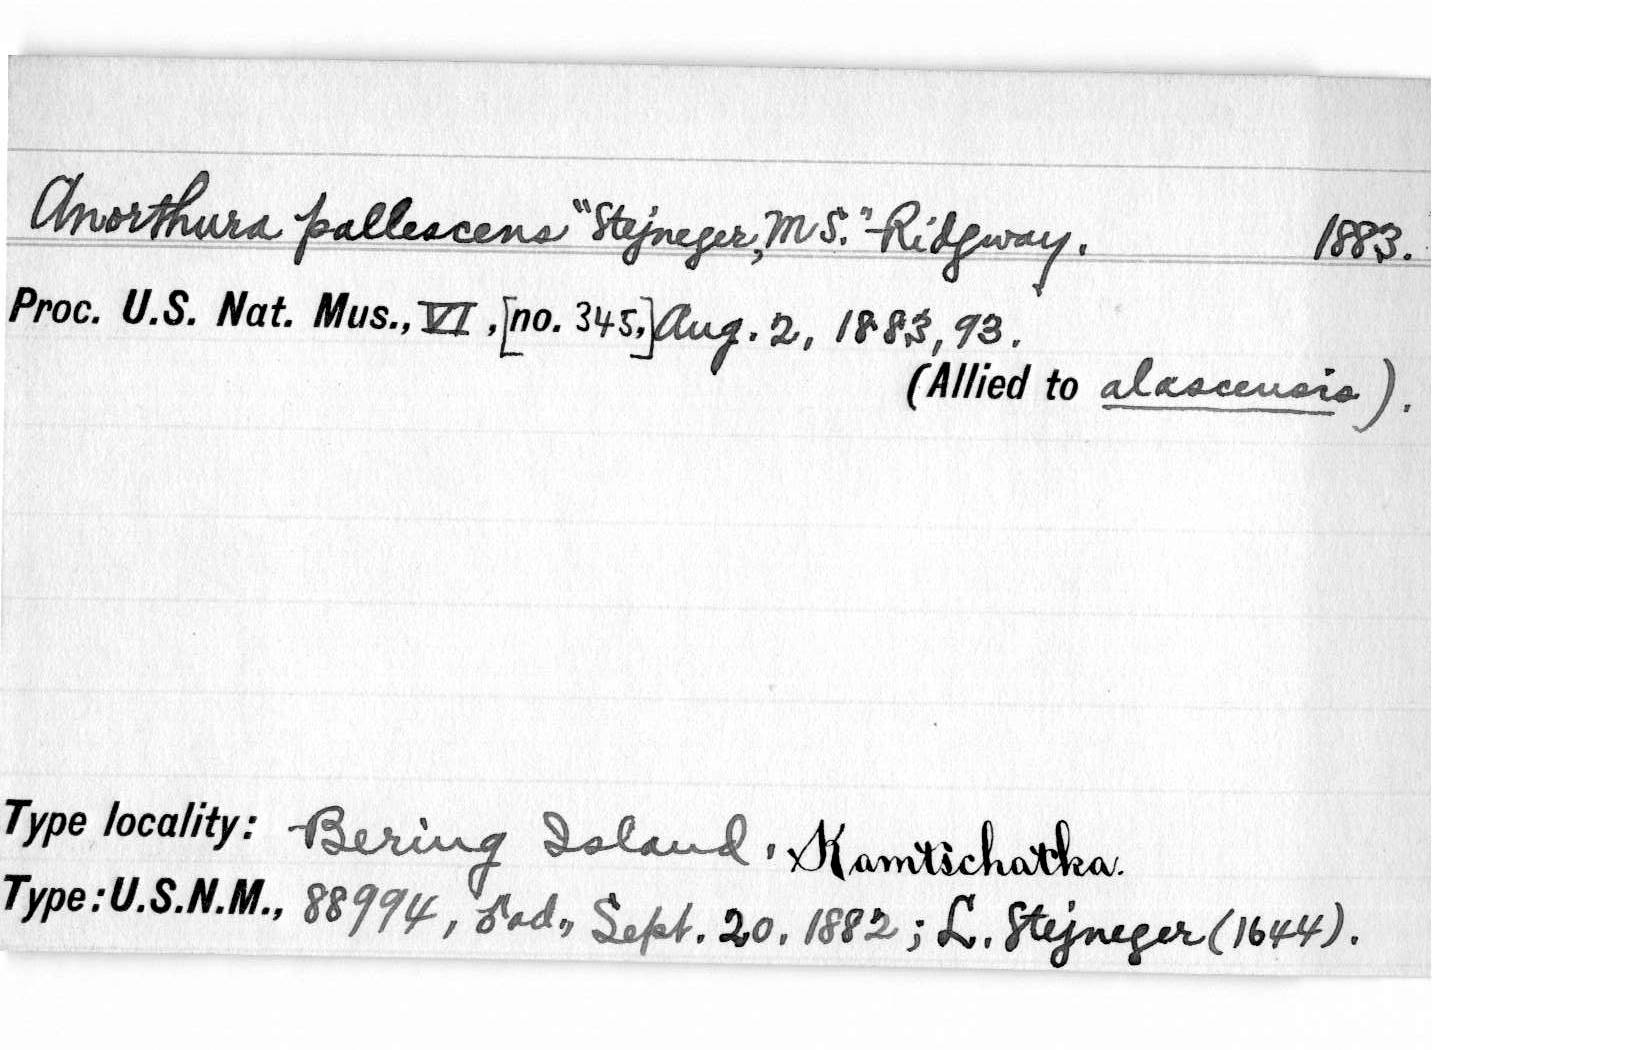 Anorthura pallescens "Stejneger, MS." Ridgway. 1883.
Proc. U.S. Nat. Mus., VI, [no. 345,] Aug. 2, 1883, 93.
(Allied to alascensis).
Type locality: Bering Island, Kamtschatka.
Type: U.S.N.M., 88994, ad., Sept. 20, 1882; L. Stejneger (1644).